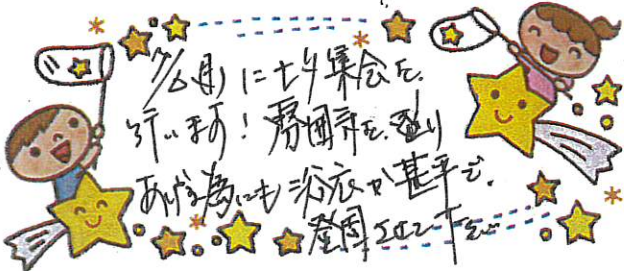 7/6(月)に七夕集会を、
行います!雰囲気を、盛り
あげる為にも浴衣か甚平で、
登園して下さい